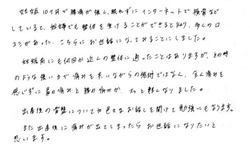 妊娠10ヶ月で腰痛が強く、眠れずにインターネットで検索など
していると、妊婦でも整体を受けることができると知り、多くの口
コミがあった、こちらにお世話になっておりることにしました。
妊娠前にも何回か近くの整体に通ったことはありますが、その時
のような強い力で痛みを手いながらの施術ではなく、全く痛みを
感じずに肩の痛みと腰の痛みが、スッと軽くなりました。
出産後の骨盤についても色々なお話しを聞けて勉強にもなります。
また出産後に痛みが出てしまったらお世話になりたいと
思います。